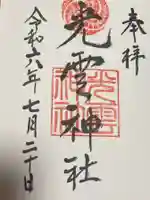 奉拝
光雲神社
令和六年七月二十日